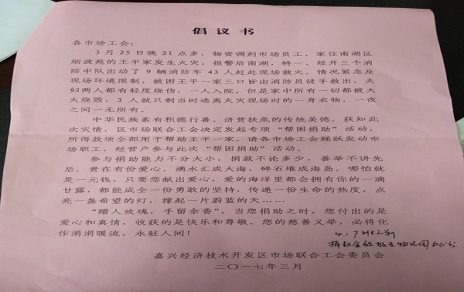 倡议书
各市场工会：
3月25日晚21点多，物资调剂市场员工，家住南湖区
烟波苑的王平家发生火灾，报警后南湖、特一、经开三个消
防中队出动了9辆消防车43人赶赴现场救火。情况紧急及
现场环境限制，被困王平一家三口皆由消防员徒手救出，夫
妇两人都有轻度烧伤，一人入院，但是家中所有一切都被大
火烧毁，3人就只剩当时逃离火灾现场时的一身衣物，一夜
之间一无所有。
中华民族素有积德行善、济贫扶危的传统美德，获知此
次火情，区市场联合工会决定发起专项“帮困捐助”活动，
所得款项全部用于帮助王平一家，请各市场工会踊跃发动市
场职工、经营户参与此次“帮困捐助”活动。
参与捐助能力不分大小，捐款不论多少，善举不讲先
后，贵在有份爱心，滴水汇成大海，碎石堆成海岛，哪怕就
是一元钱，只要您献出爱心，爱的海洋里都会拥有你的一滴
甘露，都能成全一份勇敢的坚持，传递一份生命的热度，点
亮一盏希望的灯，撑起一片蔚蓝的天……
“赠人玫瑰，手留余香”。当您捐助之时，您付出的是
爱心和真情，收获的是快乐和尊敬。您的慈善义举，必将化
作涓涓暖流，永驻人间！
嘉兴经济技术开发区市场联合工会委员会
二〇一七年三月